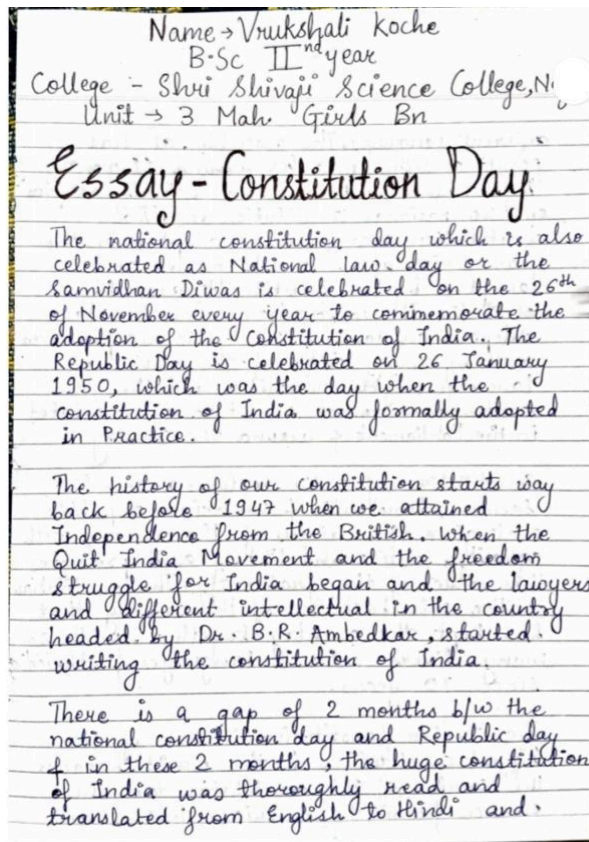 Name → Vrukshali Koche
B.Sc IInd year
College - Shri Shivaji Science College,
Unit → 3 Mah. Girls Bn
Essay - Constitution Day.
The national constitution day which is also
celebrated as National law day or the
Samvidhan Diwas is celebrated on the 26th
of November every year to commemorate the
adoption of the Constitution of India. The
Republic Day is celebrated on 26 January
1950, which was the day when the
constitution of India was formally adopted
in Practice.
The history of our constitution starts way
back before 1947 when we attained
Independence from the British. When the
Quit India Movement and the freedom
struggle for India began and the lawyers
and different intellectual in the country
headed by Dr. B.R. Ambedkar, started.
writing the constitution of India.
There is a gap of 2 months b/w the
national constitution day and Republic day
& in these 2 months, the huge constitution
of India was thoroughly read and
translated from English to Hindi and.